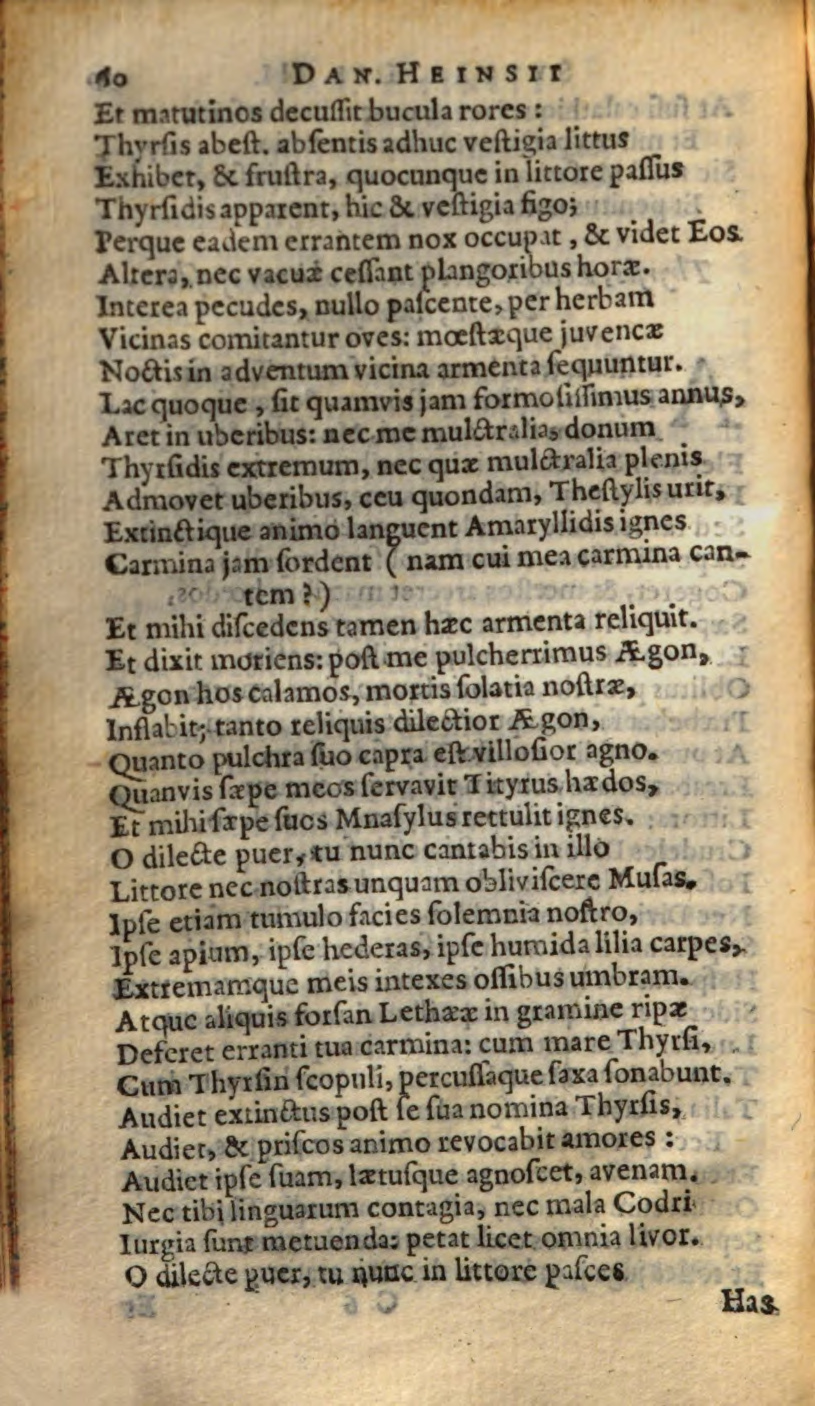 60 DAN. HEINSII
Et matutinos decuſſit bucula rores :
Thyrſis abeſt. abſentis adhuc veſtigia littus
Exhibet, & fruſtra, quocunque in littore paſſus
Thyrſidis apparent, hic & veſtigia figo;
Perque eadem errantem nox occupat, & videt Eos
Altera, nec vacuæ ceſſant plangoribus horæ.
Interea pecudes, nullo paſcente, per herbam
Vicinas comitantur oves: mœſtæque juvencæ
Noctis in adventum vicina armenta ſequuntur.
Lac quoque, ſit quamvis jam formoſiſſimus annus,
Aret in uberibus: nec me mulctralia, donum
Thyrſidis extremum, nec quæ mulctralia plenis
Admovet uberibus, ceu quondam, Theſtylis urit,
Extinctique animo languent Amaryllidis ignes
Carmina jam ſordent ( nam cui mea carmina can-
tem ? )
Et mihi diſcedens tamen hæc armenta reliquit.
Et dixit moriens: poſt me pulcherrimus Ægon,
Ægon hos calamos, mortis ſolatia noſtræ,
Inflabit; tanto reliquis dilectior Ægon,
Quanto pulchra ſuo capra eſt villoſior agno.
Quanvis ſæpe meos ſervavit Tityrus hædos,
Et mihi ſæpe ſuos Mnaſylus rettulit ignes.
O dilecte puer, tu nunc cantabis in illo
Littore nec noſtras unquam obliviſcere Muſas.
Ipſe etiam tumulo facies ſolemnia noſtro,
Ipſe apium, ipſe hederas, ipſe humida lilia carpes,
Extremamque meis intexes oſſibus umbram.
Atque aliquis forſan Lethææ in gramine ripæ
Deferet erranti tua carmina: cum mare Thyrſi,
Cum Thyrſin ſcopuli, percuſſaque ſaxa ſonabunt.
Audiet extinctus poſt ſe ſua nomina Thyrſis,
Audiet, & priſcos animo revocabit amores :
Audiet ipſe ſuam, lætuſque agnoſcet, avenam.
Nec tibi linguarum contagia, nec mala Codri
Iurgia ſunt metuenda: petat licet omnia livor.
O dilecte puer, tu nunc in littore paſces
Has